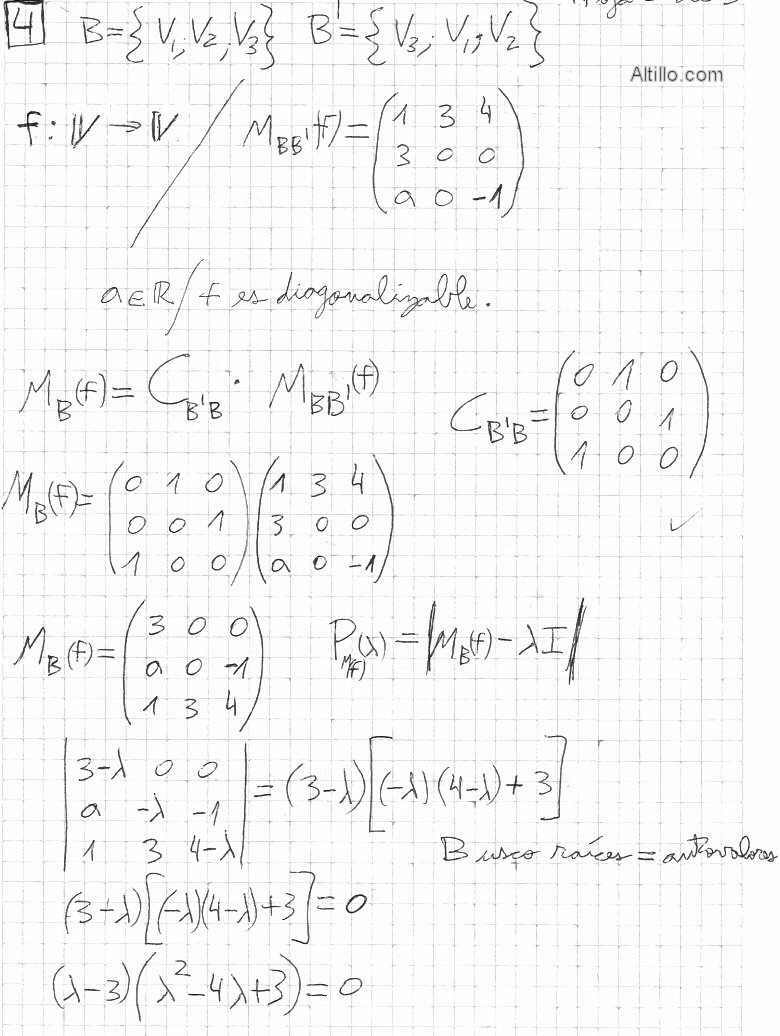 4 B={V₁; V₂; V₃} B'={V₃; V₁; V₂}
Altillo.com
f: 𝕍 → 𝕍 / M_BB'(f) = (1 3 4
3 0 0
a 0 -1)
a∈ℝ / f es diagonalizable.
M_B(f) = C_B'B · M_BB'(f)
C_B'B = (0 1 0
0 0 1
1 0 0)
✓
M_B(f) = (0 1 0 (1 3 4
0 0 1 3 0 0
1 0 0) a 0 -1)
M_B(f) = (3 0 0
a 0 -1
1 3 4)
P_M(f)(λ) = |M_B(f) - λI|
|3-λ 0 0
a -λ -1
1 3 4-λ| = (3-λ)[(-λ)(4-λ)+3]
Busco raíces = autovalores
(3-λ)[(-λ)(4-λ)+3] = 0
(λ-3)(λ²-4λ+3) = 0